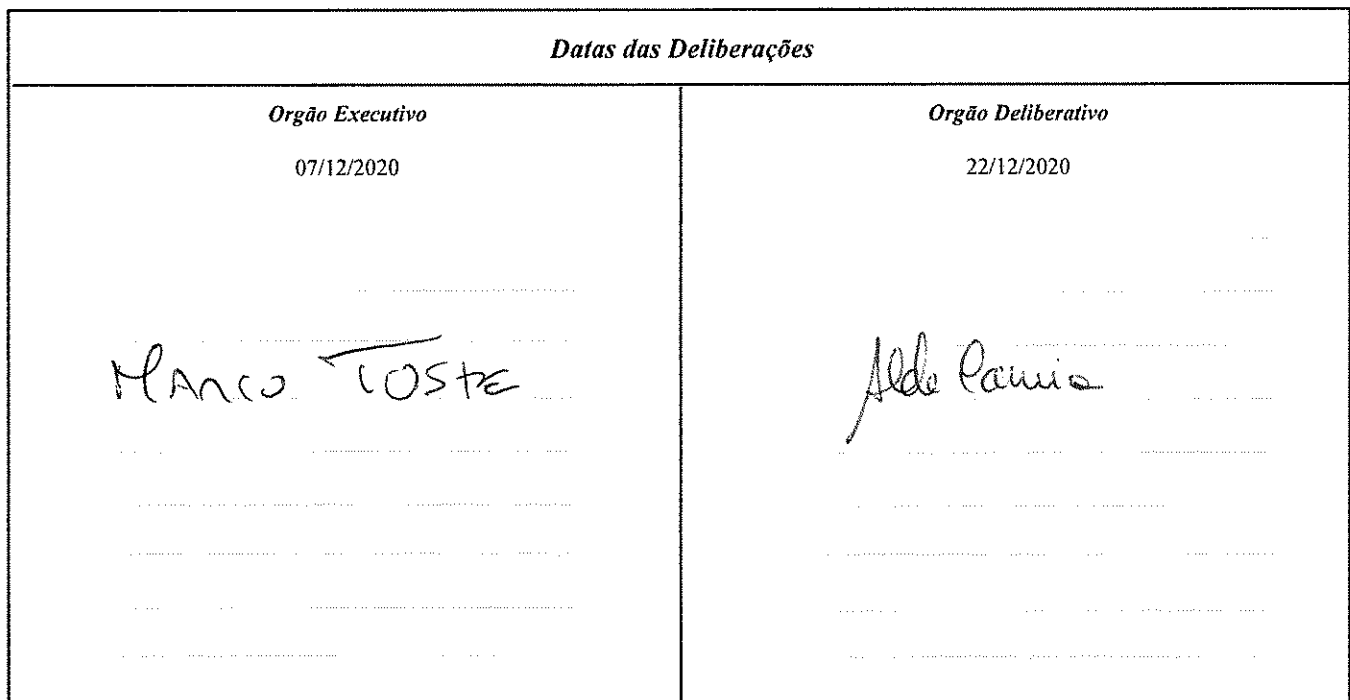 Datas das Deliberações
Orgão Executivo
07/12/2020
Marco Toste
Orgão Deliberativo
22/12/2020